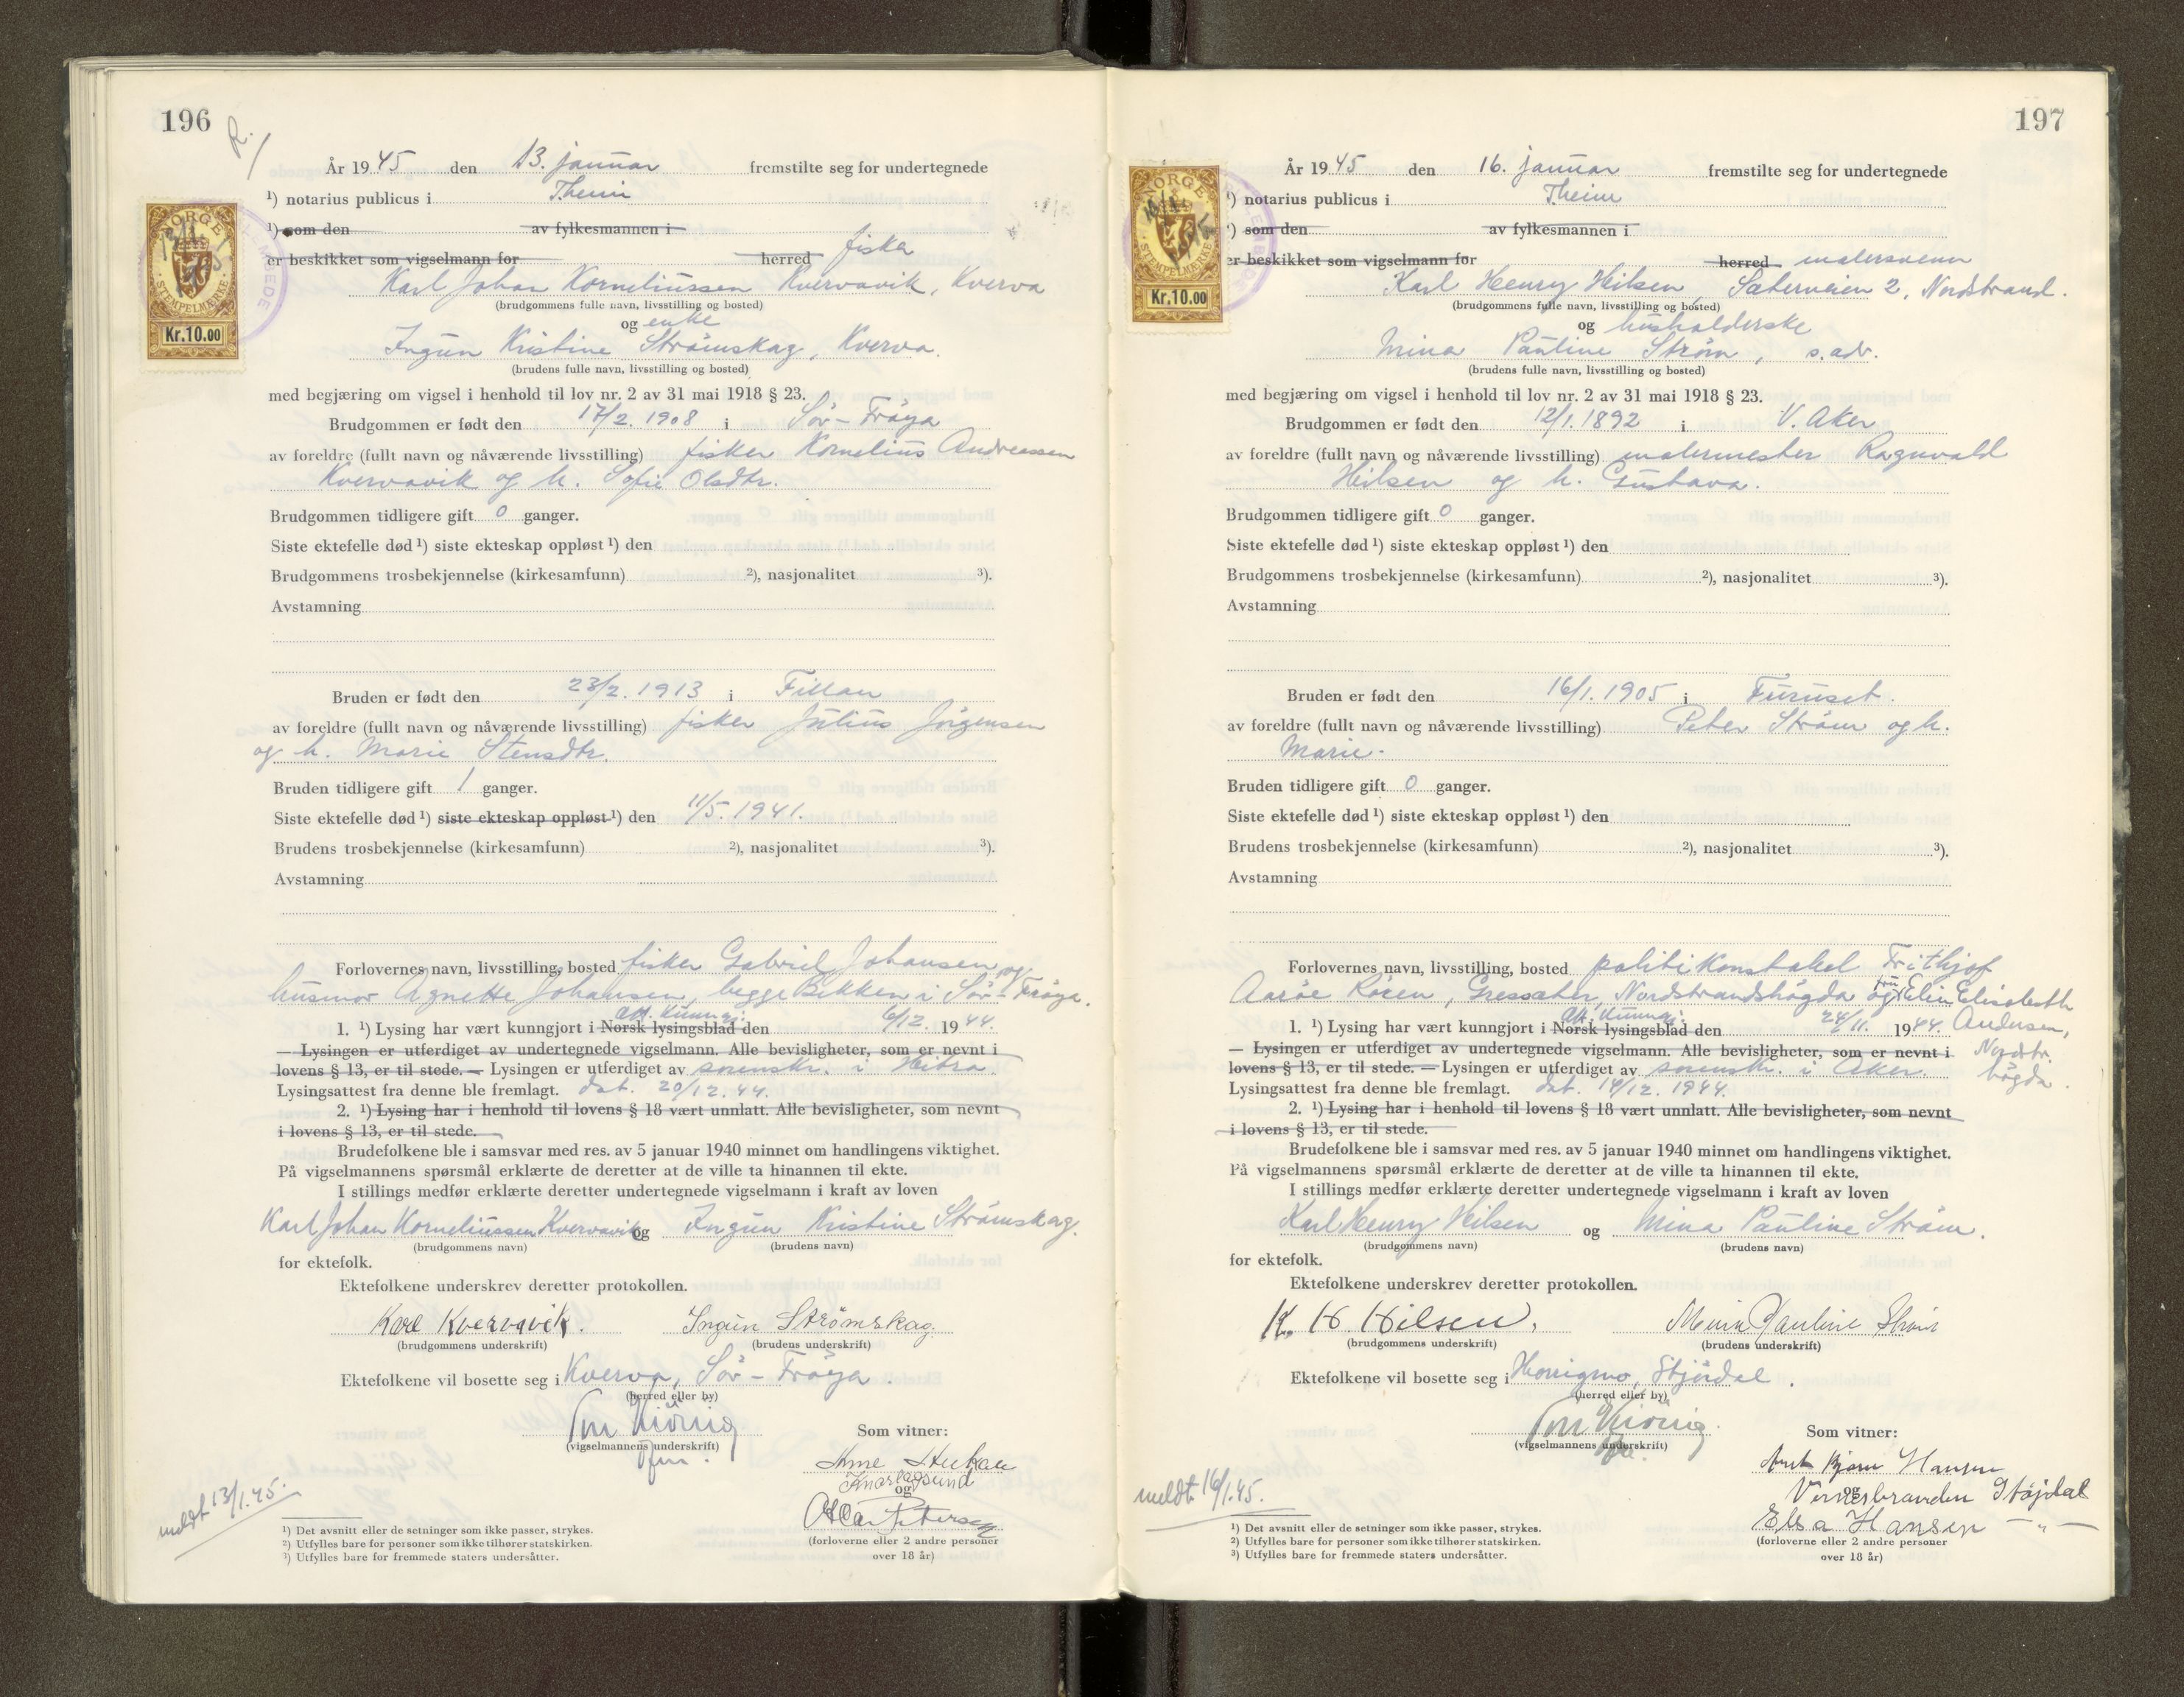 196
R.
År 1945 den 13. januar fremstilte seg for undertegnede
¹) notarius publicus i Theim
¹) som den av fylkesmannen i
er beskikket som vigselmann for herred fisker
Karl Johan Korneliussen Kvervavik, Kverva
(brudgommens fulle navn, livsstilling og bosted)
og enke
Ingun Kristine Strømskag, Kverva.
(brudens fulle navn, livsstilling og bosted)
NORGE
STEMPELMERKE
Kr.10.00
EMBEDE
med begjæring om vigsel i henhold til lov nr. 2 av 31 mai 1918 § 23.
Brudgommen er født den 17/2. 1908 i Sør-Frøya
av foreldre (fullt navn og nåværende livsstilling) fisker Kornelius Andreassen
Kvervavik og h. Sofie Olsdtr.
Brudgommen tidligere gift 0 ganger.
Siste ektefelle død ¹) siste ekteskap oppløst ¹) den
Brudgommens trosbekjennelse (kirkesamfunn) ²), nasjonalitet ³).
Avstamning
Bruden er født den 23/2. 1913 i Fillan
av foreldre (fullt navn og nåværende livsstilling) fisker Julius Jörgensen
og h. Marie Stensdtr.
Bruden tidligere gift 1 ganger.
Siste ektefelle død ¹) siste ekteskap oppløst ¹) den 11/5. 1941.
Brudens trosbekjennelse (kirkesamfunn) ²), nasjonalitet ³).
Avstamning
Forlovernes navn, livsstilling, bosted fisker Gabriel Johansen og
husmor Agnette Johansen, begge Bekken i Sør-Frøya.
off. kunngj.
1. ¹) Lysing har vært kunngjort i Norsk lysingsblad den 6/12. 1944.
— Lysingen er utferdiget av undertegnede vigselmann. Alle bevisligheter, som er nevnt i
lovens § 13, er til stede. — Lysingen er utferdiget av sorenskr. i Hitra
Lysingsattest fra denne ble fremlagt. dat. 20/12. 44.
2. ¹) Lysing har i henhold til lovens § 18 vært unnlatt. Alle bevisligheter, som nevnt
i lovens § 13, er til stede.
Brudefolkene ble i samsvar med res. av 5 januar 1940 minnet om handlingens viktighet.
På vigselmannens spørsmål erklærte de deretter at de ville ta hinannen til ekte.
I stillings medfør erklærte deretter undertegnede vigselmann i kraft av loven
Karl Johan Korneliussen Kvervavik og Ingun Kristine Strømskag.
(brudgommens navn) (brudens navn)
for ektefolk.
Ektefolkene underskrev deretter protokollen.
Karl Kvervavik. Ingun Strømskag.
(brudgommens underskrift) (brudens underskrift)
Ektefolkene vil bosette seg i Kverva, Sør-Frøya.
(herred eller by)
(vigselmannens underskrift)
Som vitner:
Knarlagsund
og
(forloverne eller 2 andre personer
over 18 år)
meldt 13/1.45.
¹) Det avsnitt eller de setninger som ikke passer, strykes.
²) Utfylles bare for personer som ikke tilhører statskirken.
³) Utfylles bare for fremmede staters undersåtter.
197
År 1945 den 16. januar fremstilte seg for undertegnede
¹) notarius publicus i Theim
¹) som den av fylkesmannen i
er beskikket som vigselmann for herred malersvenn
Karl Henry Hilsen, Sæterveien 2, Nordstrand.
(brudgommens fulle navn, livsstilling og bosted)
og husholderske
Mina Pauline Strøm, s. adr.
(brudens fulle navn, livsstilling og bosted)
NORGE
STEMPELMERKE
Kr.10.00
med begjæring om vigsel i henhold til lov nr. 2 av 31 mai 1918 § 23.
Brudgommen er født den 12/1. 1892 i V. Aker
av foreldre (fullt navn og nåværende livsstilling) malermester Ragnvald
Hilsen og h. Gustava.
Brudgommen tidligere gift 0 ganger.
Siste ektefelle død ¹) siste ekteskap oppløst ¹) den
Brudgommens trosbekjennelse (kirkesamfunn) ²), nasjonalitet ³).
Avstamning
Bruden er født den 16/1. 1905 i Furuset.
av foreldre (fullt navn og nåværende livsstilling) Peter Strøm og h.
Marie.
Bruden tidligere gift 0 ganger.
Siste ektefelle død ¹) siste ekteskap oppløst ¹) den
Brudens trosbekjennelse (kirkesamfunn) ²), nasjonalitet ³).
Avstamning
Forlovernes navn, livsstilling, bosted politikonstabel Frithjof
Aarøe Røren, Gressæter, Nordstrandshögda og fru Elin Elisabeth
off. kunngj.
1. ¹) Lysing har vært kunngjort i Norsk lysingsblad den 24/11. 1944. Andersen,
— Lysingen er utferdiget av undertegnede vigselmann. Alle bevisligheter, som er nevnt i Nordstr.
lovens § 13, er til stede. — Lysingen er utferdiget av sorenskr. i Aker. högda.
Lysingsattest fra denne ble fremlagt. dat. 14/12. 1944.
2. ¹) Lysing har i henhold til lovens § 18 vært unnlatt. Alle bevisligheter, som nevnt
i lovens § 13, er til stede.
Brudefolkene ble i samsvar med res. av 5 januar 1940 minnet om handlingens viktighet.
På vigselmannens spørsmål erklærte de deretter at de ville ta hinannen til ekte.
I stillings medfør erklærte deretter undertegnede vigselmann i kraft av loven
Karl Henry Hilsen og Mina Pauline Strøm.
(brudgommens navn) (brudens navn)
for ektefolk.
Ektefolkene underskrev deretter protokollen.
K. H. Hilsen. Mina Pauline Strøm
(brudgommens underskrift) (brudens underskrift)
Ektefolkene vil bosette seg i Stjørdal.
(herred eller by)
(vigselmannens underskrift)
Som vitner:
Bjørn Hansen
og
Elsa Hansen — " —
(forloverne eller 2 andre personer
over 18 år)
meldt 16/1.45.
¹) Det avsnitt eller de setninger som ikke passer, strykes.
²) Utfylles bare for personer som ikke tilhører statskirken.
³) Utfylles bare for fremmede staters undersåtter.